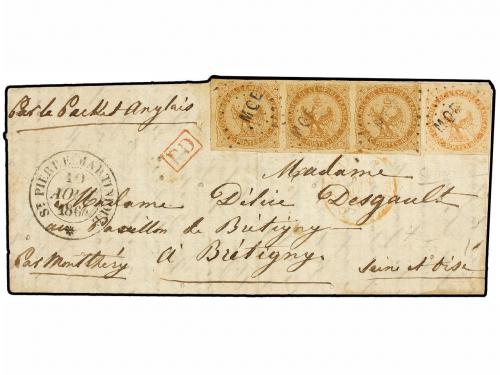 Par le Packet Anglais
MQE
MQE
MQE
PD
ST PIERRE MARTINIQUE
10
AOU
186
Madame
Madame Délie Desgault
au Pavillon de Brétigny
Par Montlhéry
à Brétigny
Seine et Oise